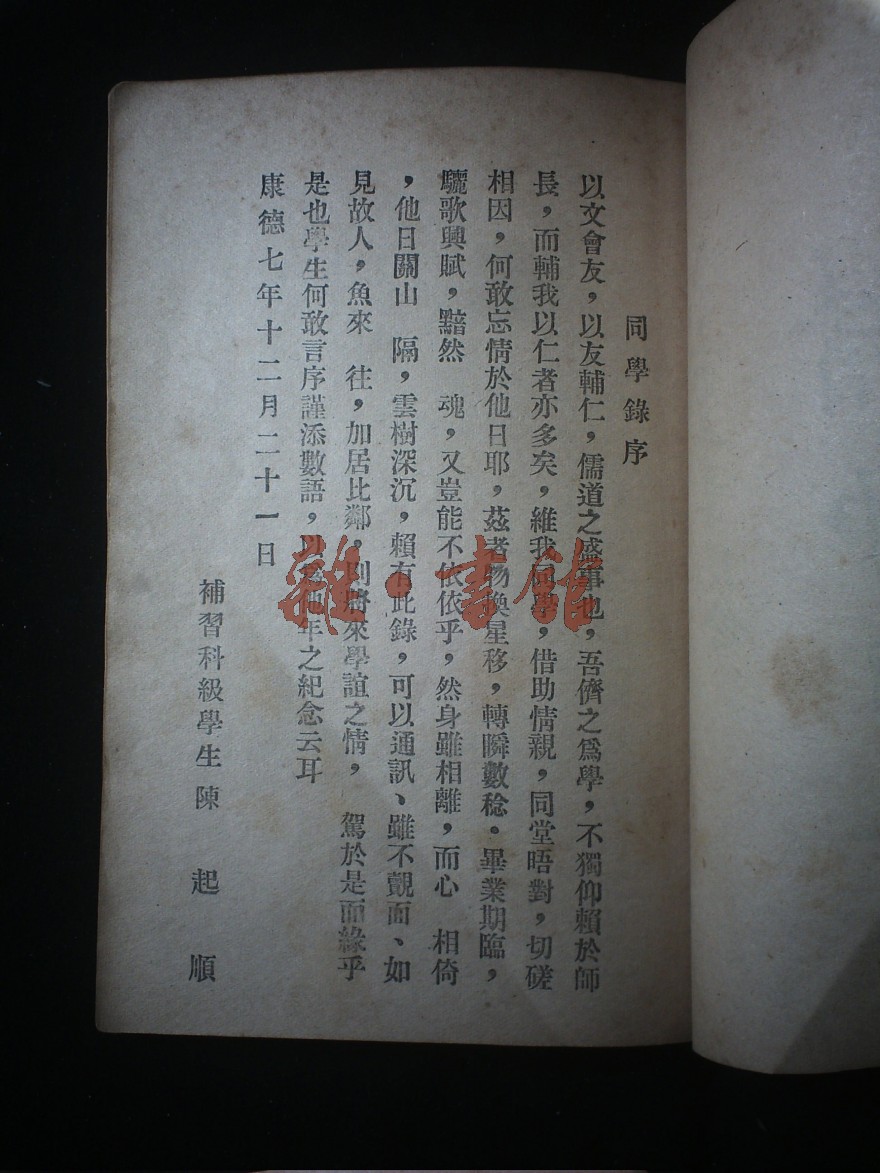 同學錄序
以文會友，以友輔仁，儒道之盛事也，吾儕之爲學，不獨仰賴於師
長，而輔我以仁者亦多矣，維我同學，借助情親，同堂晤對，切磋
相因，何敢忘情於他日耶，茲者物換星移，轉瞬數稔。畢業期臨，
驪歌興賦，黯然　魂，又豈能不依依乎，然身雖相離，而心　相倚
，他日關山　隔，雲樹深沉，賴有此錄，可以通訊、雖不覿面、如
見故人，魚來　往，加居比鄰，則將來學誼之情，　駕於是而緣乎
是也學生何敢言序謹添數語，以爲　年之紀念云耳
康德七年十二月二十一日
補習科級學生陳　起　順
雜·書館